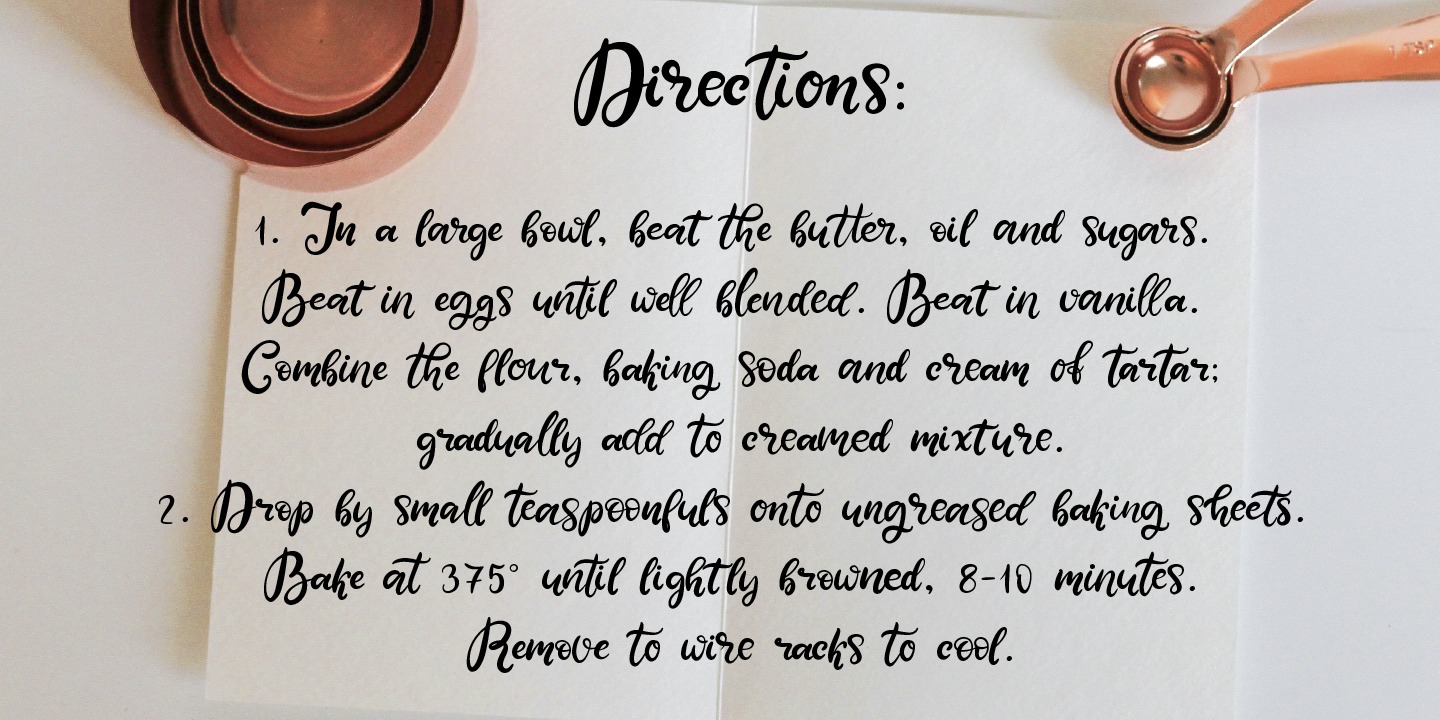 Directions:
1. In a large bowl, beat the butter, oil and sugars.
Beat in eggs until well blended. Beat in vanilla.
Combine the flour, baking soda and cream of tartar;
gradually add to creamed mixture.
2. Drop by small teaspoonfuls onto ungreased baking sheets.
Bake at 375° until lightly browned, 8-10 minutes.
Remove to wire racks to cool.
1 TSP